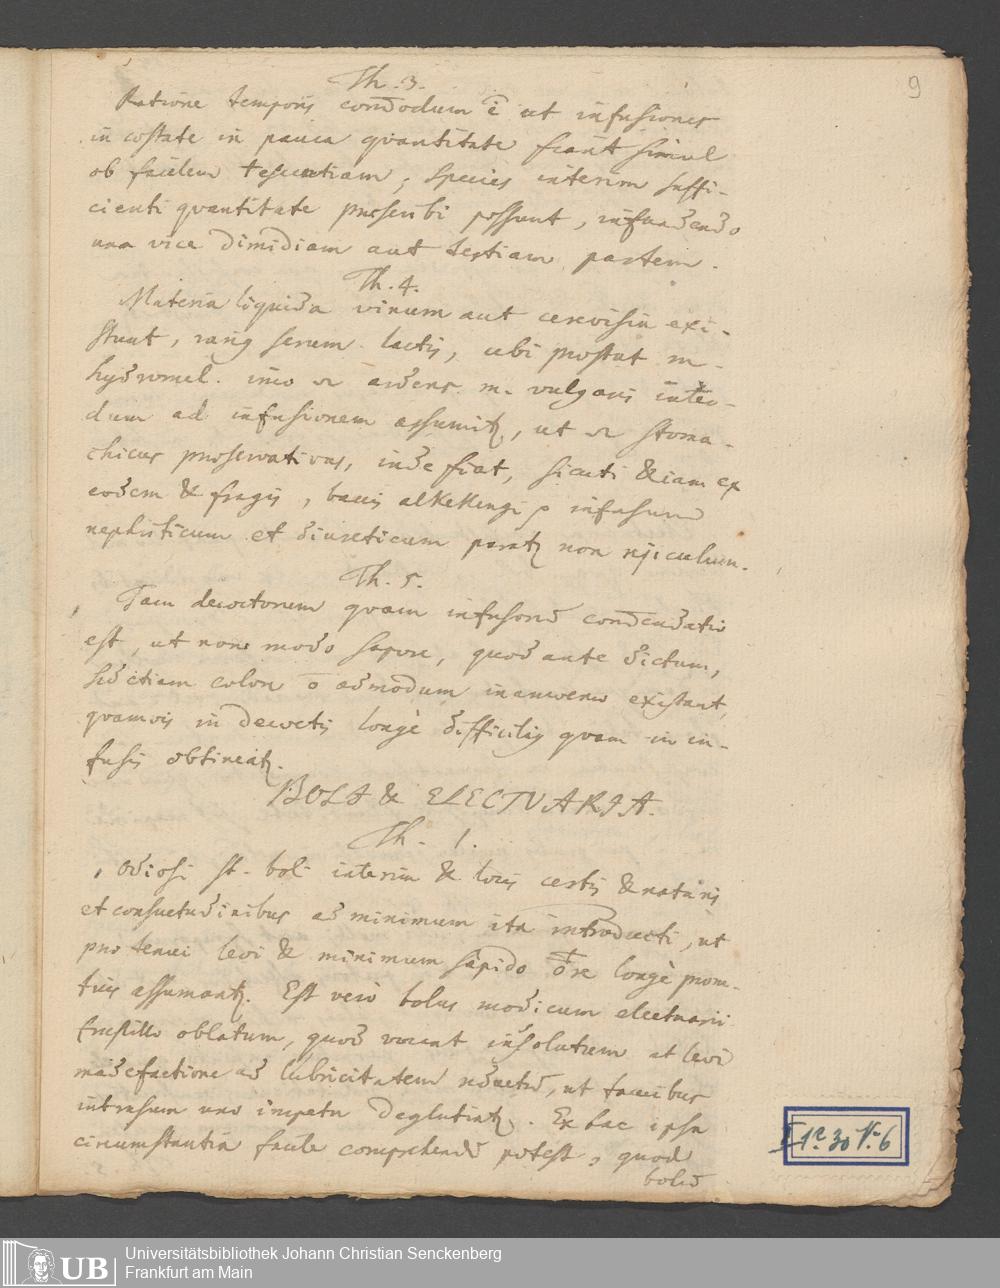 9
Th. 3.
Ratione temporis com̄odum ē ut infusiones
in æstate in pauca quantitate fiant simul
ob facilem acescentiam; species interim suffi-
cienti quantitate præscribi possunt, infundendo
una vice dimidiam aut tertiam partem.
Th. 4.
Materia liquida vinum aut cerevisia exi-
stunt, rariꝰ serum lactis, ubi prostat
hydromel. imo ardens vulgaris inter-
dum ad infusionem assumitʒ, ut stoma-
chicus præservativus, inde fiat, sicuti & iam ex
eodem & fragis, baccis alKeKengi infusum
nephriticum et diureticum paratʒ non rejiculum.
Th. 5.
Tam decoctorum quam infusorū
est, ut non modo sapore, quod ante dictum,
sed etiam colore ō admodum existant,
quamvis in decoctis longè difficiliꝰ quam in in-
fusis obtineatʒ.
BOLI & ELECTUARIA.
Th. 1.
Odiosi st. boli interim & locis certis & naturis
et consuetudinibus ad minimum ita introducti, ut
pro tenui levi & minimum sapido ōre longè prom-
tius assumantʒ. Est verò bolus modicum electuarii
frustillo oblatum, quod vocant insolutum at levi
madefactione ad lubricitatem reductū, ut faucibus
intrusum uno impetu deglutiatʒ. Ex hac ipsa
circumstantia facile comprehendi potest, quod
bolus
I 1r 30 No 6
UB
Universitätsbibliothek Johann Christian Senckenberg
Frankfurt am Main